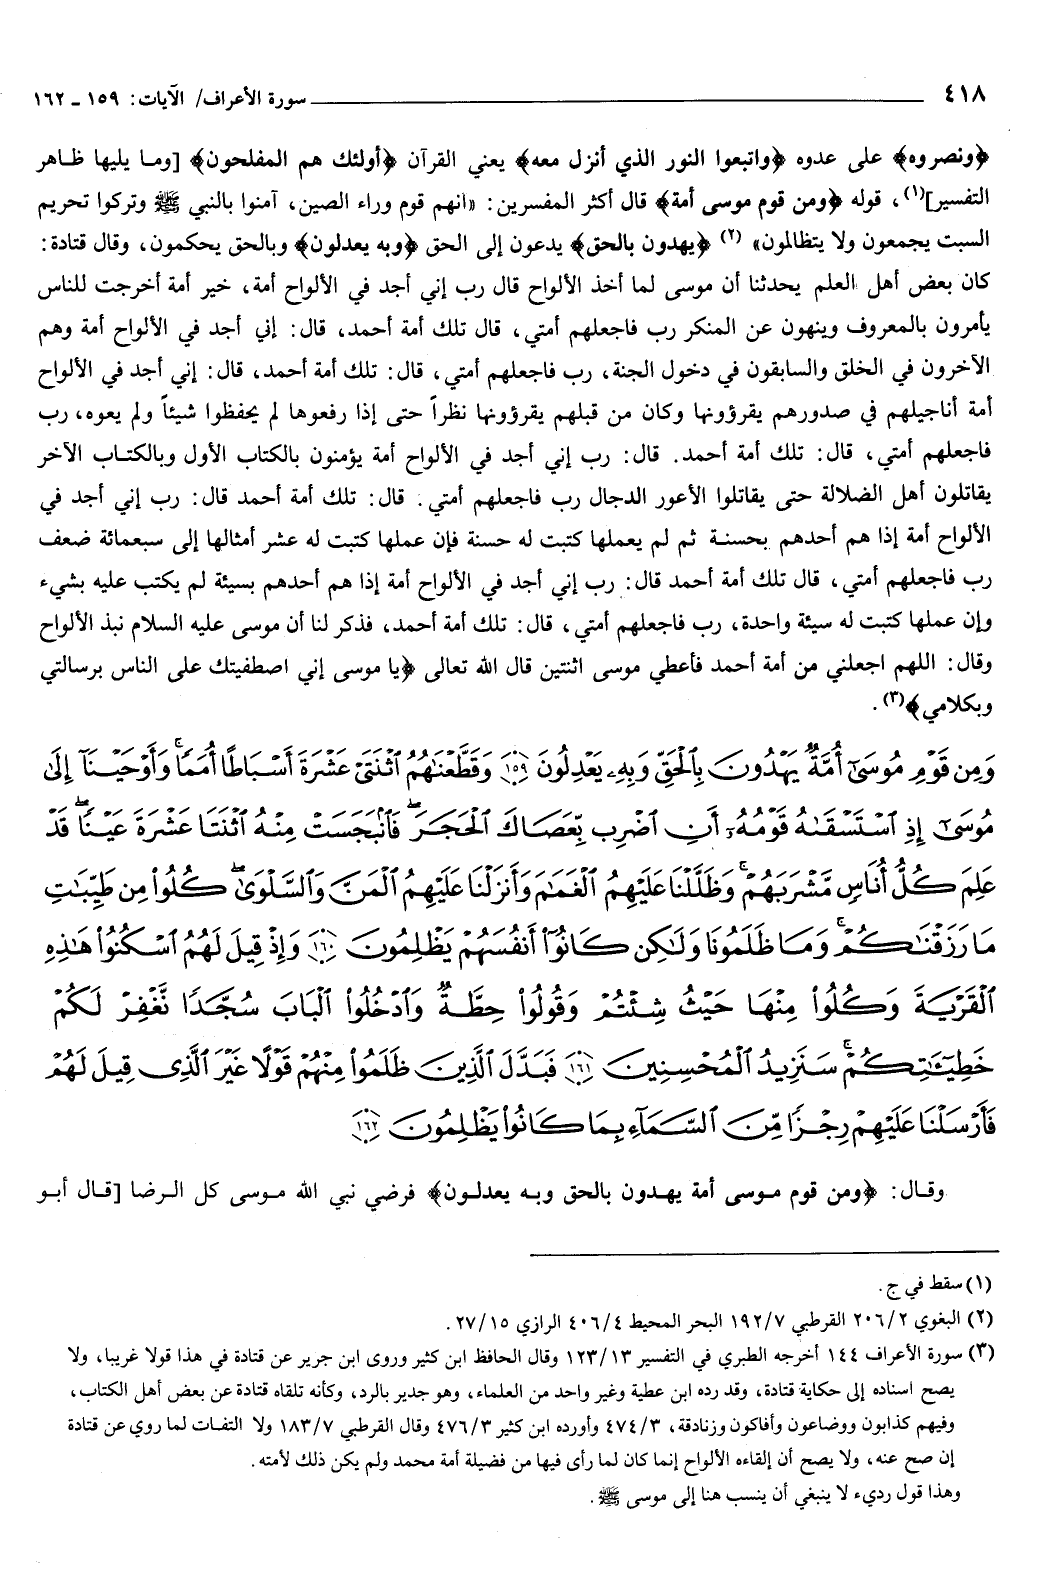 ٤١٨ سورة الأعراف/ الآيات: ١٥٩ ـ ١٦٢
﴿ونصروه﴾ على عدوه ﴿واتبعوا النور الذي أنزل معه﴾ يعني القرآن ﴿أولئك هم المفلحون﴾ [وما يليها ظاهر
التفسير](١)، قوله ﴿ومن قوم موسى أمة﴾ قال أكثر المفسرين: «انهم قوم وراء الصين، آمنوا بالنبي ﷺ وتركوا تحريم
السبت يجمعون ولا يتظالمون» (٢) ﴿يهدون بالحق﴾ يدعون إلى الحق ﴿وبه يعدلون﴾ وبالحق يحكمون، وقال قتادة:
كان بعض أهل العلم يحدثنا أن موسى لما أخذ الألواح قال رب إني أجد في الألواح أمة، خير أمة أخرجت للناس
يأمرون بالمعروف وينهون عن المنكر رب فاجعلهم أمتي، قال تلك أمة أحمد، قال: إني أجد في الألواح أمة وهم
الآخرون في الخلق والسابقون في دخول الجنة، رب فاجعلهم أمتي، قال: تلك أمة أحمد، قال: إني أجد في الألواح
أمة أناجيلهم في صدورهم يقرؤونها وكان من قبلهم يقرؤونها نظراً حتى إذا رفعوها لم يحفظوا شيئاً ولم يعوه، رب
فاجعلهم أمتي، قال: تلك أمة أحمد. قال: رب إني أجد في الألواح أمة يؤمنون بالكتاب الأول وبالكتاب الآخر
يقاتلون أهل الضلالة حتى يقاتلوا الأعور الدجال رب فاجعلهم أمتي. قال: تلك أمة أحمد قال: رب إني أجد في
الألواح أمة إذا هم أحدهم بحسنة ثم لم يعملها كتبت له حسنة فإن عملها كتبت له عشر أمثالها إلى سبعمائة ضعف
رب فاجعلهم أمتي، قال تلك أمة أحمد قال: رب إني أجد في الألواح أمة إذا هم أحدهم بسيئة لم يكتب عليه بشيء
وإن عملها كتبت له سيئة واحدة، رب فاجعلهم أمتي، قال: تلك أمة أحمد، فذكر لنا أن موسى عليه السلام نبذ الألواح
وقال: اللهم اجعلني من أمة أحمد فأعطي موسى اثنتين قال الله تعالى ﴿يا موسى إني اصطفيتك على الناس برسالتي
وبكلامي﴾(٣).
وَمِن قَوْمِ مُوسَىٰٓ أُمَّةٌ يَهْدُونَ بِٱلْحَقِّ وَبِهِۦ يَعْدِلُونَ ﴿١٥٩﴾ وَقَطَّعْنَٰهُمُ ٱثْنَتَىْ عَشْرَةَ أَسْبَاطًا أُمَمًا ۚ وَأَوْحَيْنَآ إِلَىٰ
مُوسَىٰٓ إِذِ ٱسْتَسْقَىٰهُ قَوْمُهُۥٓ أَنِ ٱضْرِب بِّعَصَاكَ ٱلْحَجَرَ ۖ فَٱنۢبَجَسَتْ مِنْهُ ٱثْنَتَا عَشْرَةَ عَيْنًا ۖ قَدْ
عَلِمَ كُلُّ أُنَاسٍ مَّشْرَبَهُمْ ۚ وَظَلَّلْنَا عَلَيْهِمُ ٱلْغَمَٰمَ وَأَنزَلْنَا عَلَيْهِمُ ٱلْمَنَّ وَٱلسَّلْوَىٰ ۖ كُلُوا۟ مِن طَيِّبَٰتِ
مَا رَزَقْنَٰكُمْ ۚ وَمَا ظَلَمُونَا وَلَٰكِن كَانُوٓا۟ أَنفُسَهُمْ يَظْلِمُونَ ﴿١٦٠﴾ وَإِذْ قِيلَ لَهُمُ ٱسْكُنُوا۟ هَٰذِهِ
ٱلْقَرْيَةَ وَكُلُوا۟ مِنْهَا حَيْثُ شِئْتُمْ وَقُولُوا۟ حِطَّةٌ وَٱدْخُلُوا۟ ٱلْبَابَ سُجَّدًا نَّغْفِرْ لَكُمْ
خَطِيٓـَٰٔتِكُمْ ۚ سَنَزِيدُ ٱلْمُحْسِنِينَ ﴿١٦١﴾ فَبَدَّلَ ٱلَّذِينَ ظَلَمُوا۟ مِنْهُمْ قَوْلًا غَيْرَ ٱلَّذِى قِيلَ لَهُمْ
فَأَرْسَلْنَا عَلَيْهِمْ رِجْزًا مِّنَ ٱلسَّمَآءِ بِمَا كَانُوا۟ يَظْلِمُونَ ﴿١٦٢﴾
وقال: ﴿ومن قوم موسى أمة يهدون بالحق وبه يعدلون﴾ فرضي نبي الله موسى كل الرضا [قال أبو
(١) سقط في ج.
(٢) البغوي ٢٠٦/٢ القرطبي ١٩٢/٧ البحر المحيط ٤٠٦/٤ الرازي ٢٧/١٥.
(٣) سورة الأعراف ١٤٤ أخرجه الطبري في التفسير ١٢٣/١٣ وقال الحافظ ابن كثير وروى ابن جرير عن قتادة في هذا قولا غريبا، ولا
يصح اسناده إلى حكاية قتادة، وقد رده ابن عطية وغير واحد من العلماء، وهو جدير بالرد، وكأنه تلقاه قتادة عن بعض أهل الكتاب،
وفيهم كذابون ووضاعون وأفاكون وزنادقة، ٤٧٤/٣ وأورده ابن كثير ٤٧٦/٣ وقال القرطبي ١٨٣/٧ ولا التفات لما روي عن قتادة
إن صح عنه، ولا يصح أن إلقاءه الألواح إنما كان لما رأى فيها من فضيلة أمة محمد ولم يكن ذلك لأمته.
وهذا قول رديء لا ينبغي أن ينسب هنا إلى موسى ﷺ.